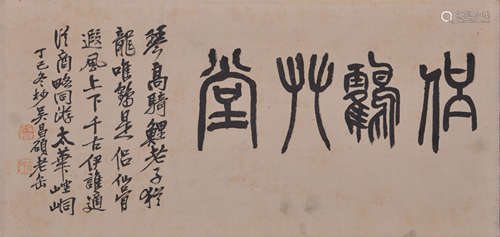 侶鶴艸堂
琴高騎鯉老子猶
龍唯鶴是侶仙骨
遐風上下千古伊誰適
從商略同游太華崆峒
丁巳冬杪吳昌碩老缶